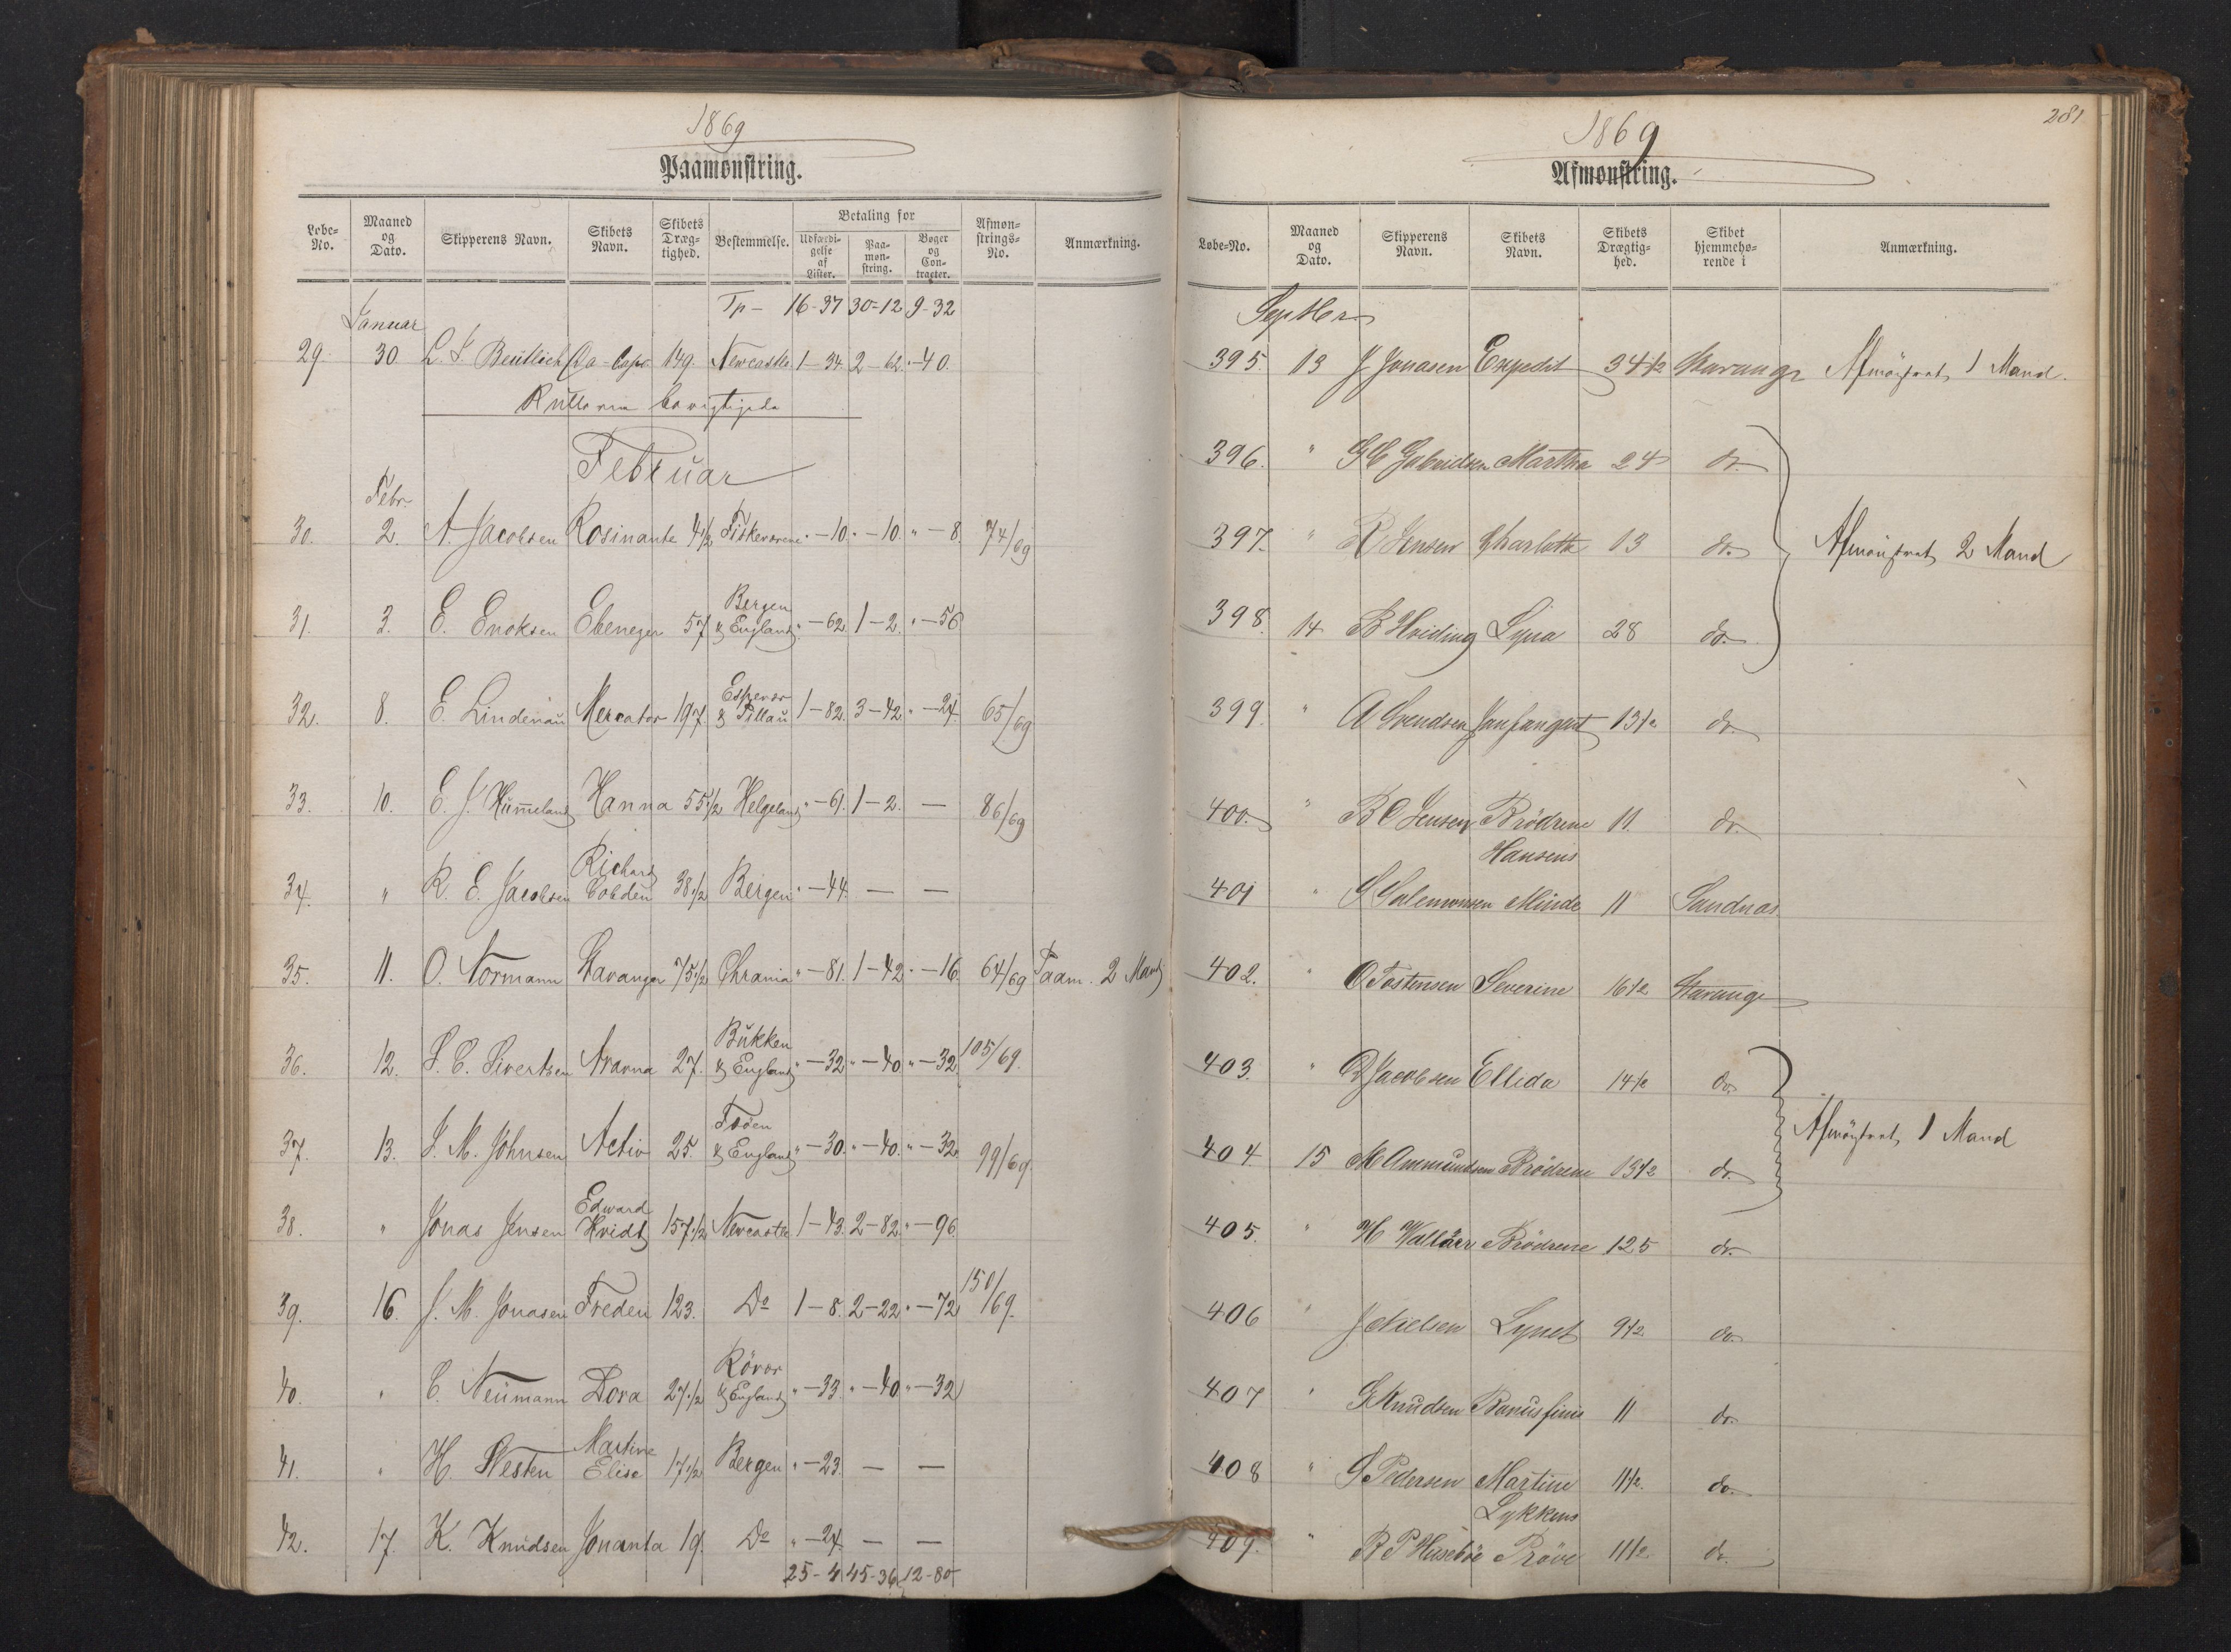 1869
Paamønstring.
Løbe-No. Maaned og Dato. Skipperens Navn. Skibets Navn. Skibets Dræg-tighed. Bestemmelse. Betaling for Udfærdi-gelse af Lister. Paa-møn-string. Bøger og Con-tracter. Afmøn-strings-No. Anmærkning.
Tp - 16-37 30-12 9-32
Januar
29. 30. Da Capo 149. Newcastle. 1-34. 2-62. "-40.
Februar
Febr.
30. 2. A. Jacobsen Rosinante 4 1/2 "-10. "-10. "-8. 74/69
31. 3. E. Enoksen Ebeneger 57. Bergen & England "-62. 1-2. "-56
32. 8. E. Lindenau Mercator 197. Espevær & Pillau 1-82. 3-42. "-24. 65/69
33. 10. E. J. Hummeland Hanna 55 1/2 Helgeland "-61. 1-2. — 86/69
34. " R. E. Jacobsen Richard Cobden 38 1/2 Bergen "-44. — —
35. 11. O. Normann Stavanger 75 1/2 Chrania "-81. 1-42. "-16. 64/69 Paam. 2 Mand
36. 12. S. C. Sivertsen 27. Bukken & England "-32. "-40. "-32. 105/69.
37. 13. J. M. Johnsen Activ 25. & England "-30. "-40. "-32. 99/69
38. " Jonas Jensen Edward Hvidt 157 1/2 Newcastle 1-43. 2-82. "-96.
39. 16. J. M. Jonasen Freden 123. Do 1-8. 2-22. "-72 150/69.
40. " C. Neumann Dora 27 1/2 Rövær & England "-33. "-40. "-32
41. " H. Westen Martine Elise 17 1/2 Bergen "-23. — —
42. 17. K. Knudsen Jonanta 19. Do "-24. — —
25-4 45-36. 12-80
281
1869
Afmønstring.
Løbe-No. Maaned og Dato. Skipperens Navn. Skibets Navn. Skibets Drægtig-hed. Skibet hjemmehø-rende i Anmærkning.
Septbr
395. 13 J Jonasen Expedit 34 1/2 Stavanger Afmönstret 1 Mand.
396. " G C Gabrielsen Martha 24 do
397. " R Jensen Charlotte 13 do. Afmönstret 2 Mand
398. 14 B Hviding Lyna 28 do.
399. " A Svendsen 13 1/2 do
400. " B O Jensen Brödrene 11. do.
401 " S Salemonsen Hansens Minde 11 Sandnæs
402. " O Tostensen Severine 16 1/2 Stavanger
403. " Jacobsen Ellida 14 1/2 do
404. 15 M Ammundsen Brödrene 13 1/2 do. Afmönstret 1 Mand
405. " Brödrene 125 do.
406 " J Nielsen Lynet 9 1/2 do.
407 " G Knudsen 11 do.
408 " S Pedersen Martine 11 1/2. do.
409. " B P Husebøe Lykkens Pröve 11 1/2 do.